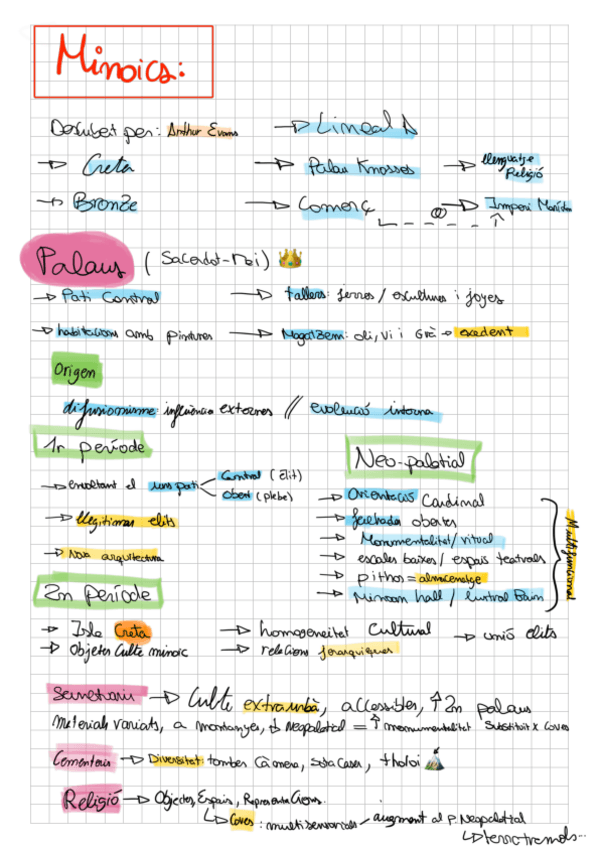 Minoics:
Descubert per: Arthur Evans → Lineal A
→ Creta → Palau Knossos → llenguatje Religió
→ Bronze → Comerç → Imperi Marítim
Palaus (Sacerdot-Rei) 👑
→ Pati Central → tallers: ferres / escultures i joyes
→ habitacions amb pintures → Magatzem: oli, vi i Grà → exedent
Origen
difusionisme: influència externes // evolució interna
1r període
Neo-palatial
→ envoltant el uns pati Central (Elit)
obert (plebe)
→ Orientació Cardinal
→ llegitimar elits
→ fachada obertes
→ Monumentalitat/ ritual
→ Nova arquitectura
→ escales baixes/ espais teatrals
→ pithos = almacenatge
→ Minoan hall / Lustral Basin
Multifuncional
2n Període
→ Isla Creta → homogeneitat Cultural → unió elits
→ objetes Culte minoic → relacions jerarquiques
Santuaris → Culte extraurbà, accessibles, ↑ 2n palaus
Materials variats, a montanyes, ↓ Neopalatial = ↑ monumentalitat Substituit x Coves
Cementeris → Diversitat: tombes Càmera, Sota Cases, tholoi
Religió → Objectes, Espais, Representacions.
↳ Coves: multisensorials - augment al p. Neopalatial
↳ terratremols...